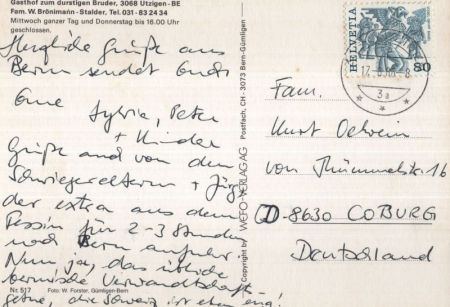 Gasthof zum durstigen Bruder, 3068 Utzigen-BE
Fam. W. Brönimann-Stalder, Tel. 031-83 24 34
Mittwoch ganzer Tag und Donnerstag bis 16.00 Uhr
geschlossen.
Herzliche Grüße aus
Bern sendet Euch
Eure
Sylvia, Peter
+ Kinder
Grüße auch von den
Schwiegereltern + Jürg
der extra aus dem
Tessin für 2-3 Stunden
nach Bern anfuhr.
Nun ja, das übliche
bernische Verwandtschaft-
getue, die Schweiz ist eben eng!
Nr. 517 Foto: W. Forster, Gümligen-Bern
Copyright by WEFO-VERLAG AG Postfach, CH-3073 Bern-Gümligen
HELVETIA
80
3a
Fam.
Kurt Oelwein
von Thümmelstr. 16
D-8630 COBURG
Deutschland